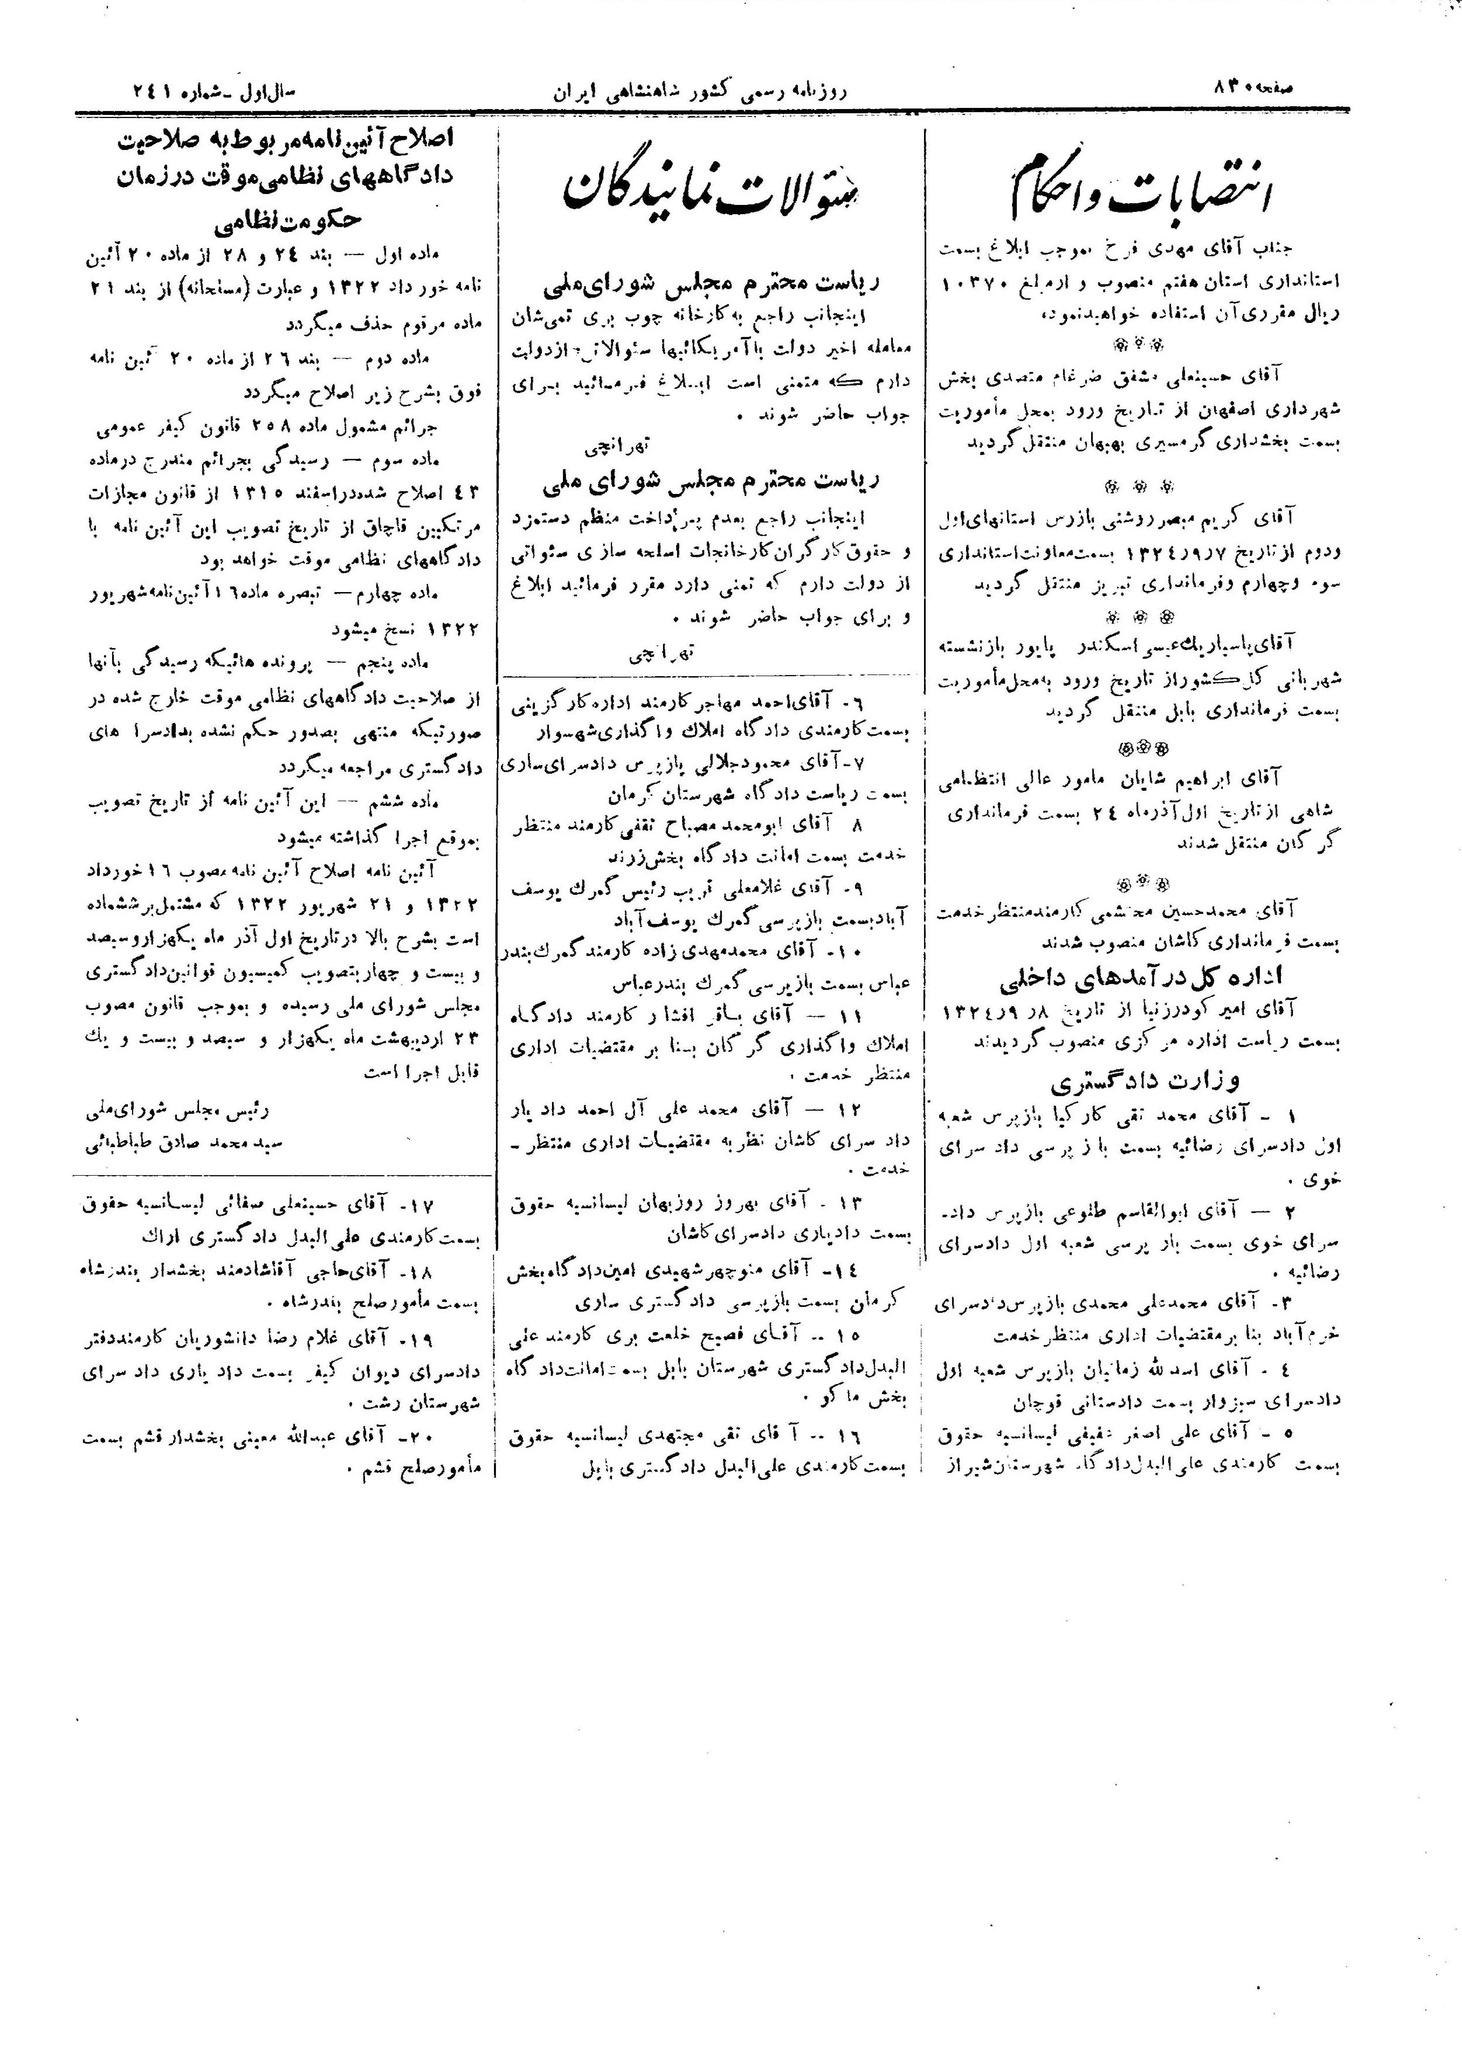 صفحه ۸۳۰
روزنامه رسمی کشور شاهنشاهی ایران
سال اول - شماره ۲٤۱
انتصابات و احکام
جناب آقای مهدی فرخ بموجب ابلاغ بسمت
استانداری استان هفتم منصوب و از مبلغ ۱۰۳۷۰
ریال مقرری آن استفاده خواهید نمود.
آقای حسینعلی مشفق ضرغام متصدی بخش
شهرداری اصفهان از تاریخ ورود بمحل مأموریت
بسمت بخشداری گرمسیری بهبهان منتقل گردید
آقای کریم مبصر روشنی بازرس استانهای اول
ودوم از تاریخ ۱۳۲٤ر۹ر۷ بسمت معاونت استانداری
سوم وچهارم وفرمانداری تبریز منتقل گردید
آقای پاسیاریك عیسی اسکندر پایور بازنشسته
شهربانی کل کشور از تاریخ ورود به محل مأموریت
بسمت فرمانداری بابل منتقل گردید
آقای ابراهیم شایان مامور عالی انتظامی
شاهی از تاریخ اول آذرماه ۲٤ بسمت فرمانداری
گرگان منتقل شدند
آقای محمدحسین محتشمی کارمند منتظر خدمت
بسمت فرمانداری کاشان منصوب شدند
اداره کل درآمدهای داخلی
آقای امیر گودرزنیا از تاریخ ۱۳۲٤ر۹ر۸
بسمت ریاست اداره مرکزی منصوب گردیدند
وزارت دادگستری
۱ - آقای محمد تقی کارکیا بازپرس شعبه
اول دادسرای رضائیه بسمت بازپرسی دادسرای
خوی .
۲ — آقای ابوالقاسم طلوعی بازپرس داد-
سرای خوی بسمت بازپرسی شعبه اول دادسرای
رضائیه .
۳- آقای محمدعلی محمدی بازپرس دادسرای
خرم آباد بنا بر مقتضیات اداری منتظر خدمت
٤ - آقای اسدالله زمانیان بازپرس شعبه اول
دادسرای سبزوار بسمت دادستانی قوچان
٥ - آقای علی اصغر عفیفی لیسانسیه حقوق
بسمت کارمندی علی البدل دادگاه شهرستان شیراز
سئوالات نمایندگان
ریاست محترم مجلس شورای ملی
اینجانب راجع به کارخانه چوب بری نمی شان
معامله اخیر دولت با آمریکائیها سئوالاتی از دولت
دارم که متمنی است ابلاغ فرمائید برای
جواب حاضر شوند .
تهرانچی
ریاست محترم مجلس شورای ملی
اینجانب راجع بعدم پرداخت منظم دستمزد
و حقوق کارگران کارخانجات اسلحه سازی سئواتی
از دولت دارم که تمنی دارد مقرر فرمائید ابلاغ
و برای جواب حاضر شوند .
تهرانچی
٦- آقای احمد مهاجر کارمند اداره کارگزینی
بسمت کارمندی دادگاه املاك واگذاری شهسوار
۷- آقای محمود جلالی بازپرس دادسرای ساری
بسمت ریاست دادگاه شهرستان کرمان
۸ آقای ابومحمد مصباح ثقفی کارمند منتظر
خدمت بسمت امانت دادگاه بخش زرند
۹- آقای غلامعلی قریب رئیس گمرك یوسف
آباد بسمت بازپرسی گمرك یوسف آباد
۱۰- آقای محمدمهدی زاده کارمند گمرك بندر
عباس بسمت بازپرسی گمرك بندرعباس
۱۱ — آقای باقر افشار کارمند دادگاه
املاك واگذاری گرگان بنا بر مقتضیات اداری
منتظر خدمت .
۱۲ — آقای محمد علی آل احمد دادیار
دادسرای کاشان نظر به مقتضیات اداری منتظر -
خدمت .
۱۳ - آقای بهروز روزبهان لیسانسیه حقوق
بسمت دادیاری دادسرای کاشان
۱٤- آقای منوچهر شهیدی امین دادگاه بخش
کرمان بسمت بازپرسی دادگستری ساری
۱٥ -- آقای فصیح خلعت بری کارمند علی
البدل دادگستری شهرستان بابل بسمت امانت دادگاه
بخش ماکو .
۱٦ -- آقای تقی مجتهدی لیسانسیه حقوق
بسمت کارمندی علی البدل دادگستری بابل
اصلاح آئین نامه مربوط به صلاحیت
دادگاههای نظامی موقت در زمان
حکومت نظامی
ماده اول — بند ۲٤ و ۲۸ از ماده ۲۰ آئین
نامه خورداد ۱۳۲۲ و عبارت (مسلحانه) از بند ۲۱
ماده مرقوم حذف میگردد
ماده دوم — بند ۲٦ از ماده ۲۰ آئین نامه
فوق بشرح زیر اصلاح میگردد
جرائم مشمول ماده ۲٥۸ قانون کیفر عمومی
ماده سوم — رسیدگی بجرائم مندرج در ماده
٤۳ اصلاح شده در اسفند ۱۳۱٥ از قانون مجازات
مرتکبین قاچاق از تاریخ تصویب این آئین نامه با
دادگاههای نظامی موقت خواهد بود
ماده چهارم — تبصره ماده ۱٦ آئین نامه شهریور
۱۳۲۲ نسخ میشود
ماده پنجم — پرونده هائیکه رسیدگی بآنها
از صلاحیت دادگاههای نظامی موقت خارج شده در
صورتیکه منتهی بصدور حکم نشده بدادسراهای
دادگستری مراجعه میگردد
ماده ششم — این آئین نامه از تاریخ تصویب
بموقع اجرا گذاشته میشود
آئین نامه اصلاح آئین نامه مصوب ۱٦ خورداد
۱۳۲۲ و ۲۱ شهریور ۱۳۲۲ که مشتمل بر ششماده
است بشرح بالا در تاریخ اول آذر ماه یکهزار و سیصد
و بیست و چهار بتصویب کمیسیون قوانین دادگستری
مجلس شورای ملی رسیده و بموجب قانون مصوب
۲۳ اردیبهشت ماه یکهزار و سیصد و بیست و یك
قابل اجرا است
رئیس مجلس شورای ملی
سید محمد صادق طباطبائی
۱۷- آقای حسینعلی صفائی لیسانسیه حقوق
بسمت کارمندی علی البدل دادگستری اراك
۱۸- آقای حاجی آقا شادمند بخشدار بندرشاه
بسمت مأمور صلح بندرشاه .
۱۹- آقای غلام رضا دانشوریان کارمند دفتر
دادسرای دیوان کیفر بسمت دادیاری دادسرای
شهرستان رشت .
۲۰- آقای عبدالله معینی بخشدار قشم بسمت
مأمور صلح قشم .